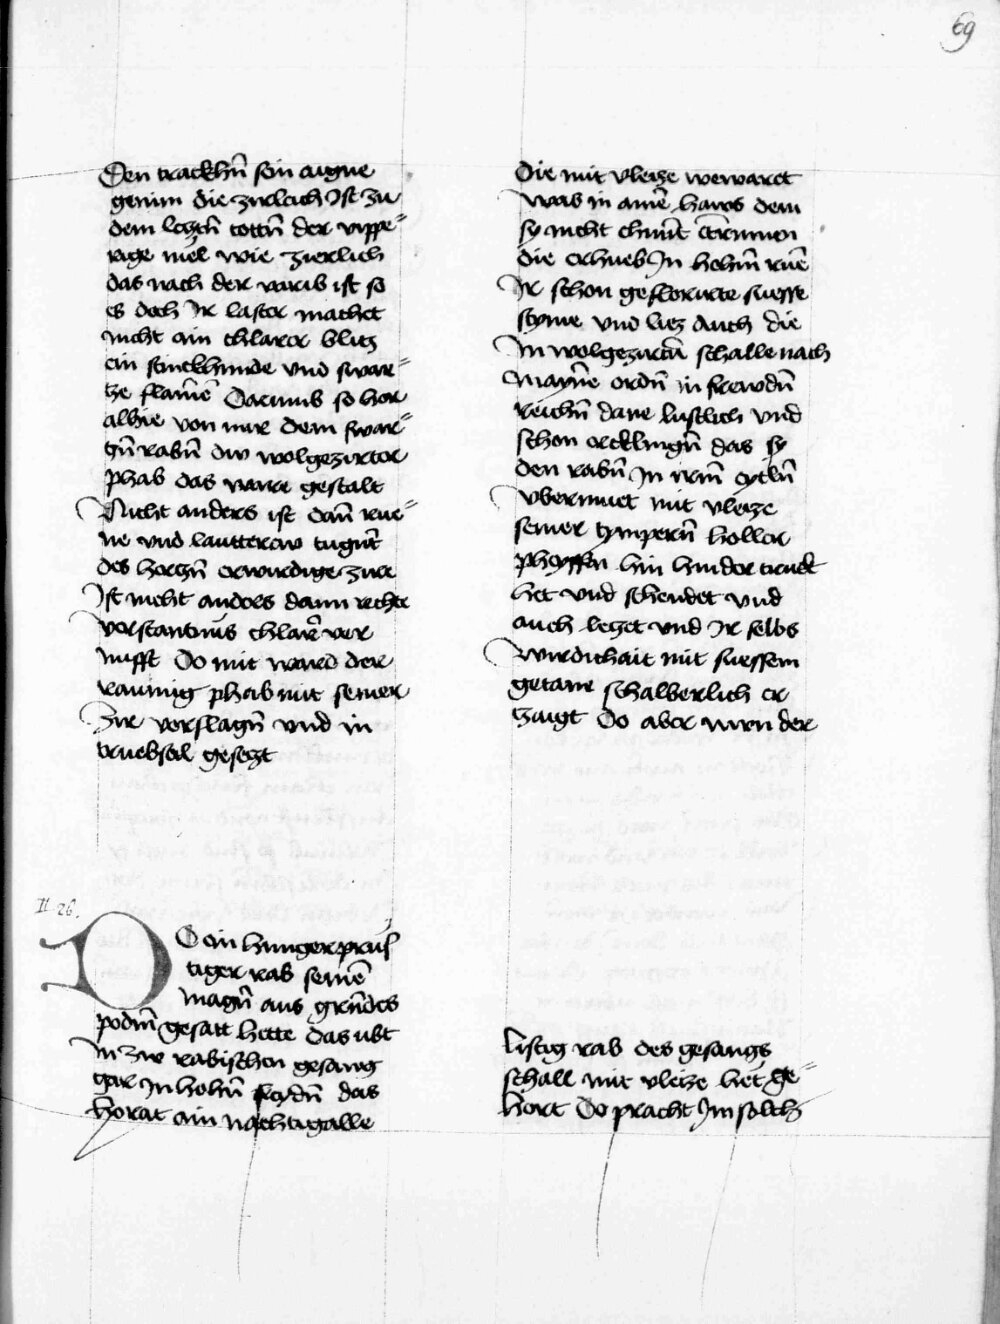 69
Den trackhn̄ sein augne
genim die zirleich Ist zu
dem leczn̄ tottn̄ der vippe⸗
rage niel wie zierlich
das nach der varib ist so
es doch Ir laster machet
nicht ain chlarer blicz
ein stinckhunde vnd swar⸗
cze flam̄e Darumb so hor
alhie von mir dem swar⸗
czn̄ rabn̄ dw wolgezirter
phab das ware gestalt
Nicht anders ist dan̄ rue⸗
we vnd lautterew tugnt̄
des herczn̄ erwirdige zirr
Ist nicht anders dann rechte
verstantnus chlar̄ ver
nufft Do mit ward der
raumig phab mit seiner
Zir verslagn̄ vnd in
truebsal geseczt
II 26.
DO ain hungerprus
tiger rab seinē
magn̄ aus grūdes
podm̄ gesatt hette das ubt
In zw rabischen gesang
gar In hohn̄ frewdn̄ das
horat ain nachtigalle
Die mit vleize wewaret
was in ainē haws dem
sy nicht chūnt entrinnen
die erhueb In hohm̄ ruē
Ir schon geflorirte suesse
styme vnd liez auch die
In wolgezirtn̄ schalle nach
Maynē ordn̄ in frewdn̄
reichn̄ dane lustlich vnd
schon ercklingn̄ das sy
den rabn̄ In irm̄ eytln̄
vbermuet mit vleize
seiner tympern̄ holler
pheyffen hin hinder truck
het vnd schendet vnd
auch leczet vnd Ir selbs
wirdichait mit suessem
getane schalberlich er
zaigt Do aber nun der
listig rab des gesangs
schall mit vleize het ge⸗
hort Do pracht Im solch